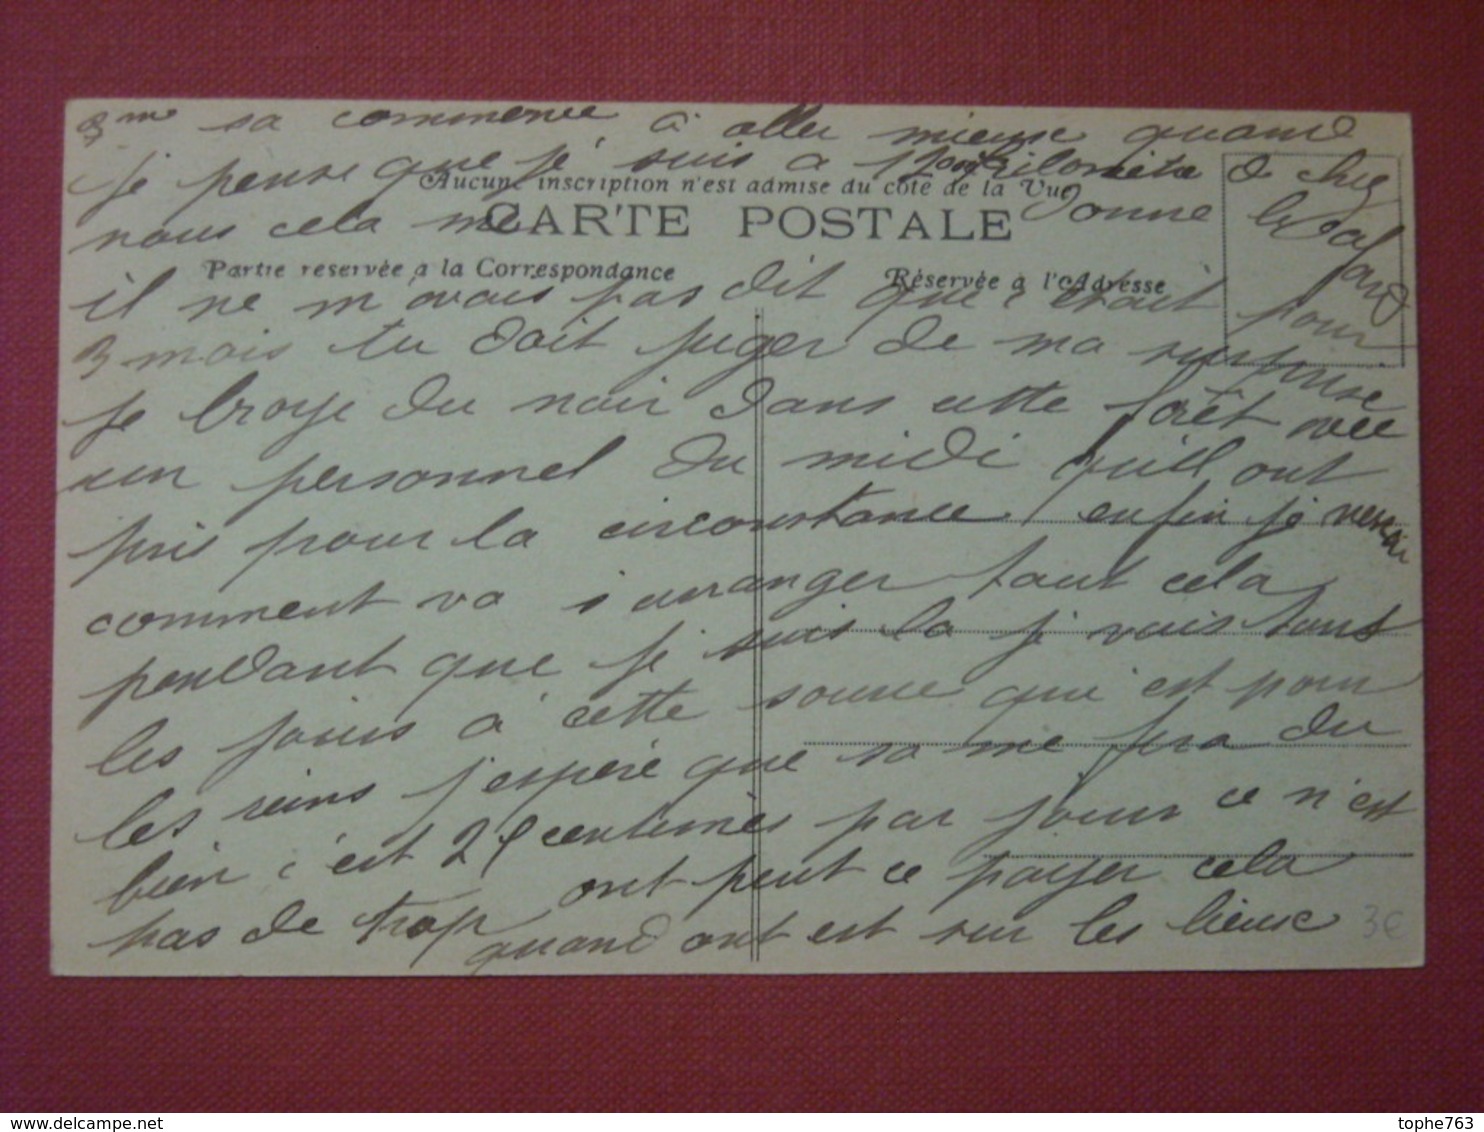 3me sa commence à aller mieux quand
je pense que jé suis a 1200 kilomètre d chez
Aucune inscription n'est admise du côté de la Vue
nous cela me donne le cafard
CARTE POSTALE
Partie reservée a la Correspondance
Réservée à l'Adresse
il ne m'avais pas dit que c'etait pour
3 mois tu doit juger de ma surprise
je broye du noir dans cette forêt avec
un personnel du midi quill ont
pris pour la circonstance enfin je verrai
comment va s'arranger tout cela
pendant que je suis la je vais tous
les jours à cette source qui est pour
les reins j'espère que sa me fera du
bien c'est 25 centimes par jour ce n'est
pas de trop ont peut ce payer cela
quand ont est sur les lieux
3€
tophe763